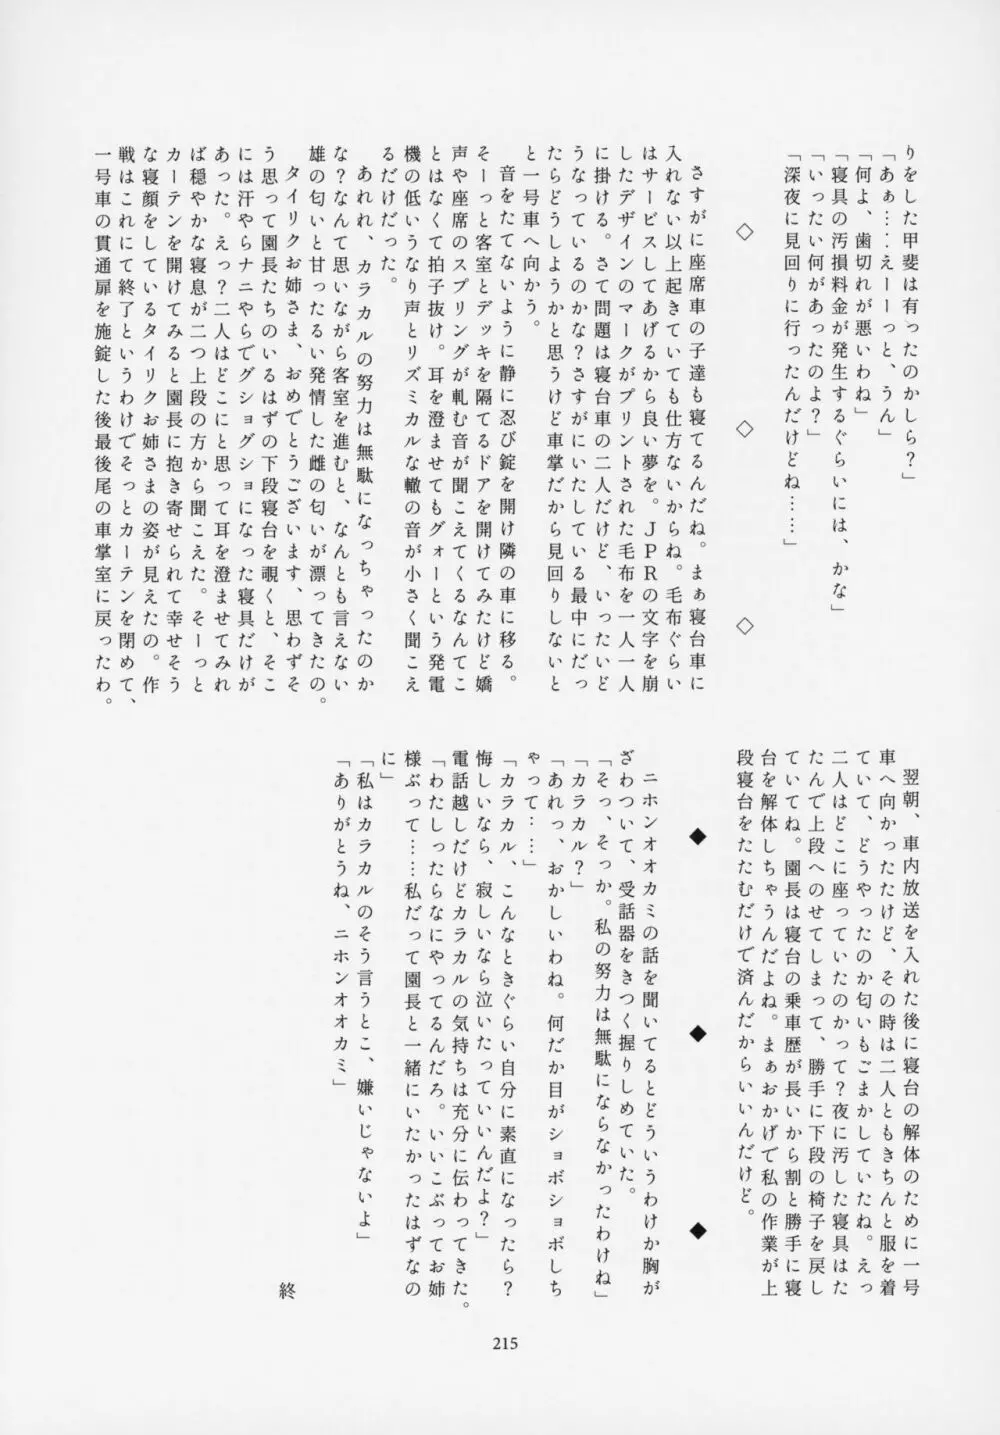 りをした甲斐は有ったのかしら？」
「あぁ……えーーっと、うん」
「何よ、歯切れが悪いわね」
「寝具の汚損料金が発生するぐらいには、かな」
「いったい何があったのよ？」
「深夜に見回りに行ったんだけどね……」
◇　◇　◇
さすがに座席車の子達も寝てるんだね。まぁ寝台車に
入れない以上起きていても仕方ないからね。毛布ぐらい
はサービスしてあげるから良い夢を。ＪＰＲの文字を崩
したデザインのマークがプリントされた毛布を一人一人
に掛ける。さて問題は寝台車の二人だけど、いったいど
うなっているのかな？さすがにいたしている最中にだっ
たらどうしようかと思うけど車掌だから見回りしないと
と一号車へ向かう。
音をたてないように静に忍び錠を開け隣の車に移る。
そーっと客室とデッキを隔てるドアを開けてみたけど嬌
声や座席のスプリングが軋む音が聞こえてくるなんてこ
とはなくて拍子抜け。耳を澄ませてもグォーという発電
機の低いうなり声とリズミカルな轍の音が小さく聞こえ
るだけだった。
あれれ、カラカルの努力は無駄になっちゃったのか
な？なんて思いながら客室を進むと、なんとも言えない
雄の匂いと甘ったるい発情した雌の匂いが漂ってきたの。
タイリクお姉さま、おめでとうございます、思わずそ
う思って園長たちのいるはずの下段寝台を覗くと、そこ
には汗やらナニやらでグショグショになった寝具だけが
あった。えっ？二人はどこにと思って耳を澄ませてみれ
ば穏やかな寝息が二つ上段の方から聞こえた。そーっと
カーテンを開けてみると園長に抱き寄せられて幸せそう
な寝顔をしているタイリクお姉さまの姿が見えたの。作
戦はこれにて終了というわけでそっとカーテンを閉めて、
一号車の貫通扉を施錠した後最後尾の車掌室に戻ったわ。
翌朝、車内放送を入れた後に寝台の解体のために一号
車へ向かったたけど、その時は二人ともきちんと服を着
ていて、どうやったのか匂いもごまかしていたね。えっ
二人はどこに座っていたのかって？夜に汚した寝具はた
たんで上段へのせてしまって、勝手に下段の椅子を戻し
ていてね。園長は寝台の乗車歴が長いから割と勝手に寝
台を解体しちゃうんだよね。まぁおかげで私の作業が上
段寝台をたたむだけで済んだからいいんだけど。
◆　◆　◆
ニホンオオカミの話を聞いてるとどういうわけか胸が
ざわついて、受話器をきつく握りしめていた。
「そっ、そっか。私の努力は無駄にならなかったわけね」
「カラカル？」
「あれっ、おかしいわね。何だか目がショボショボしち
ゃって……」
「カラカル、こんなときぐらい自分に素直になったら？
悔しいなら、寂しいなら泣いたっていいんだよ？」
電話越しだけどカラカルの気持ちは充分に伝わってきた。
「わたしったらなにやってるんだろ。いいこぶってお姉
様ぶって……私だって園長と一緒にいたかったはずなの
に」
「私はカラカルのそう言うとこ、嫌いじゃないよ」
「ありがとうね、ニホンオオカミ」
終
215